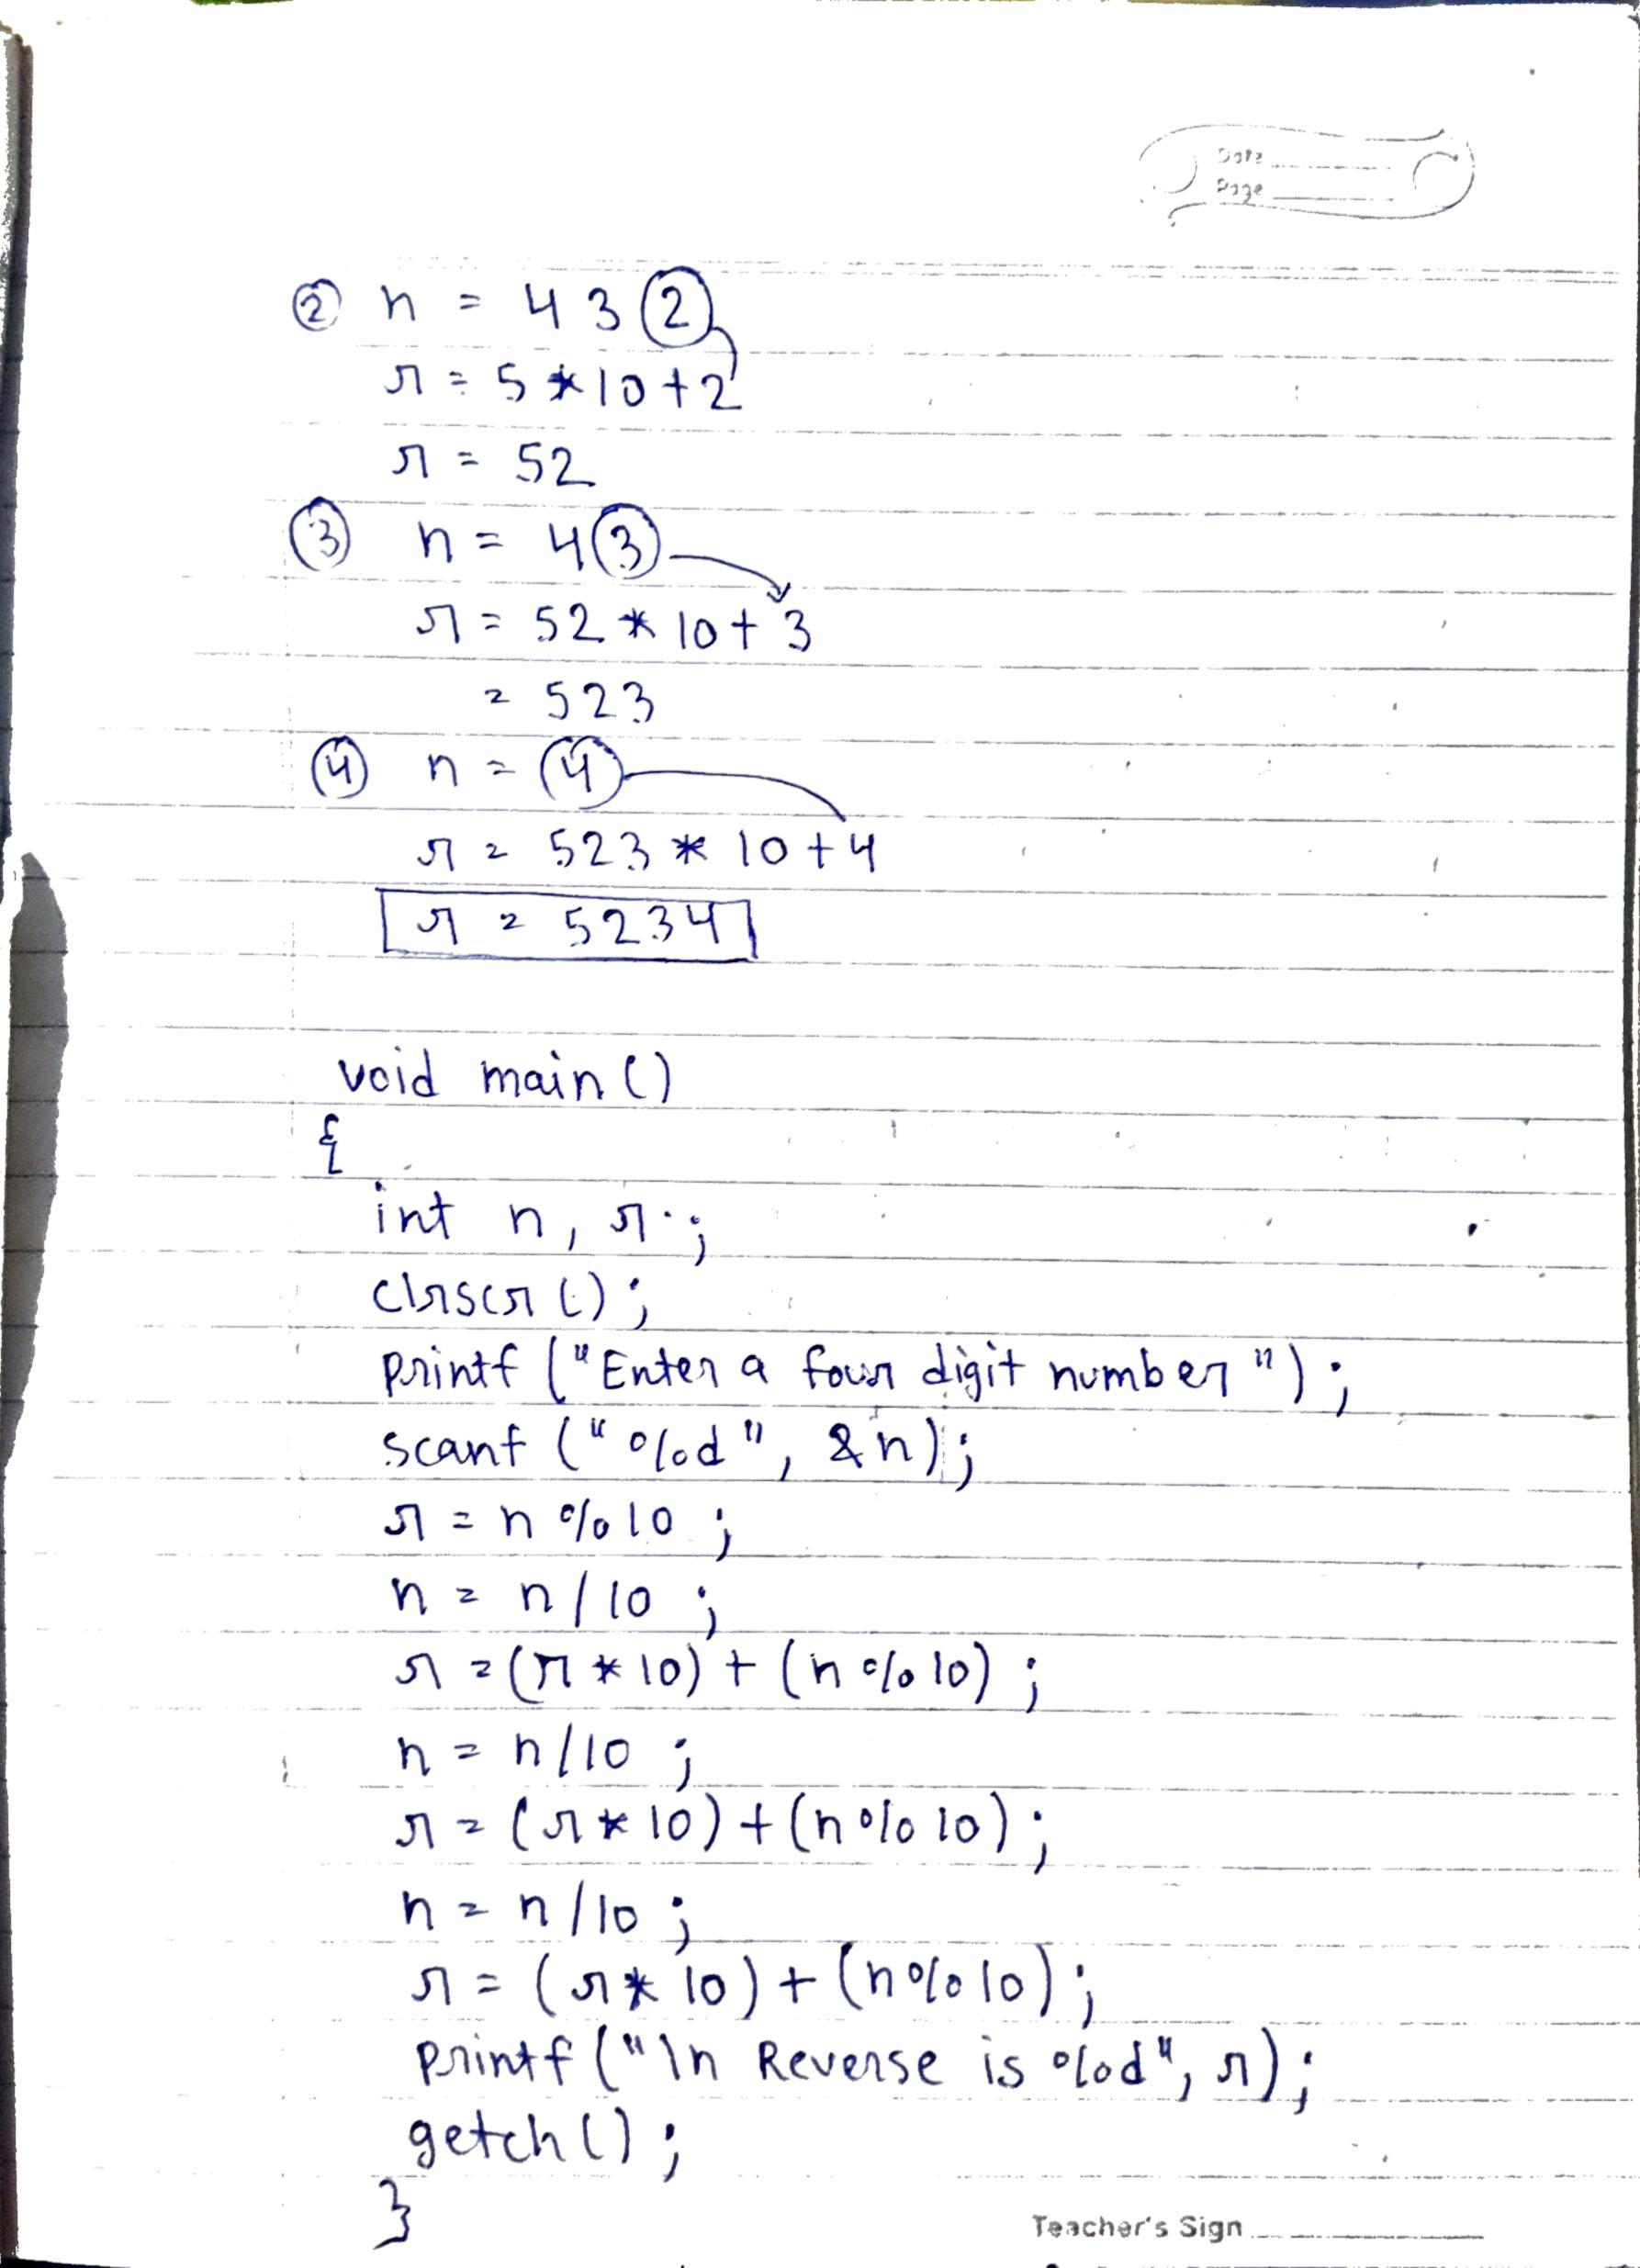 Date
Page
② n = 43②
r = 5*10+2
r = 52
③ n = 4③
r = 52*10+3
= 523
④ n = ④
r = 523*10+4
r = 5234
void main()
{
int n, r;
clrscr();
printf("Enter a four digit number");
scanf("%d", &n);
r = n%10;
n = n/10;
r = (r*10)+(n%10);
n = n/10;
r = (r*10)+(n%10);
n = n/10;
r = (r*10)+(n%10);
printf("\n Reverse is %d", r);
getch();
}
Teacher's Sign